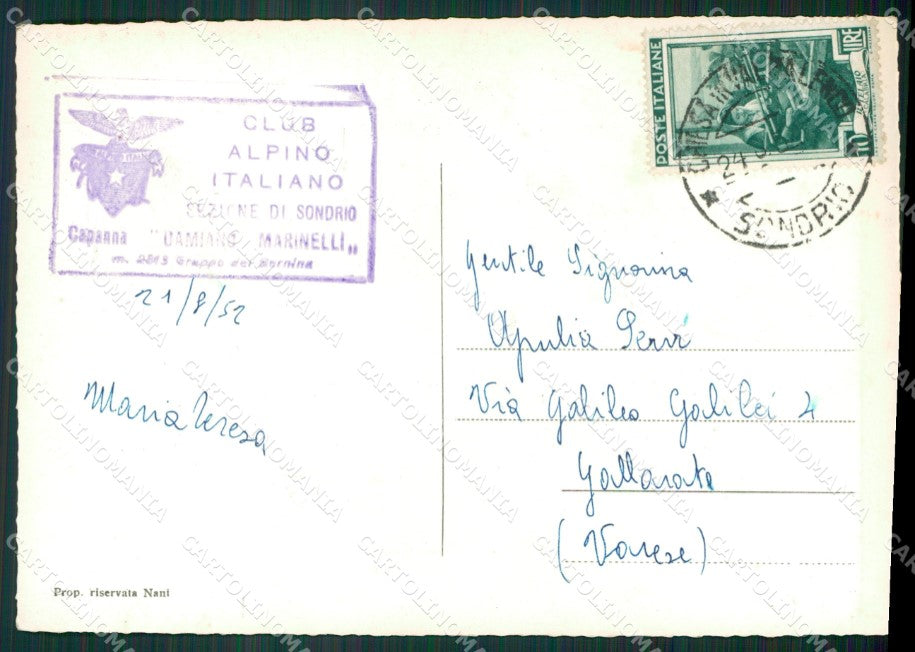 CLUB
ALPINO
ITALIANO
SEZIONE DI SONDRIO
Capanna "DAMIANO MARINELLI„
m. 2813 Gruppo del Bernina
21/8/52
Maria Teresa
Prop. riservata Nani
POSTE ITALIANE
LIRE
10
24
SONDRIO
Gentile Signorina
Apulia Servi
Via Galileo Galilei 4
Gallarate
(Varese)
CARTOLINOMANIA